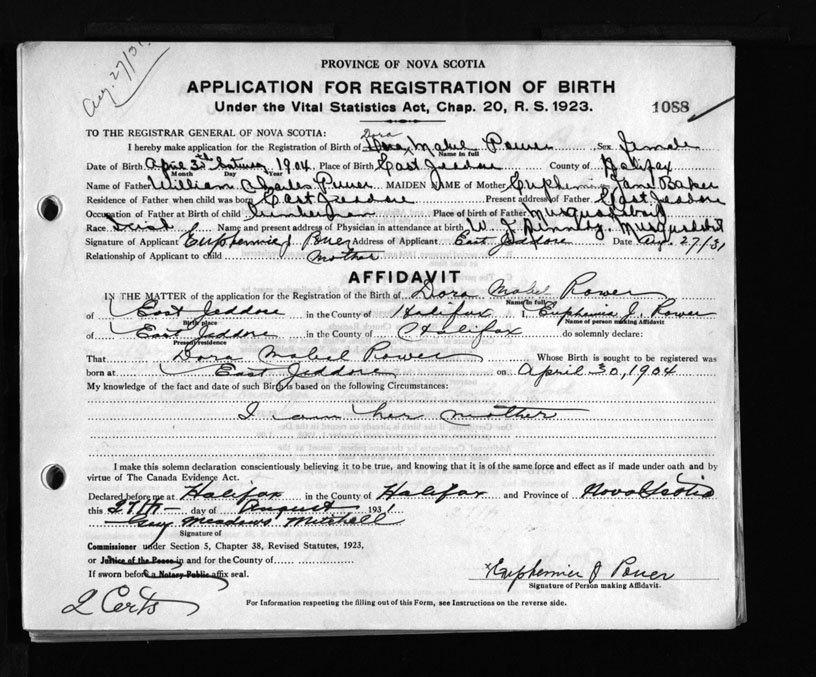 Aug. 27/31.
PROVINCE OF NOVA SCOTIA
APPLICATION FOR REGISTRATION OF BIRTH
Under the Vital Statistics Act, Chap. 20, R. S. 1923.
1088
TO THE REGISTRAR GENERAL OF NOVA SCOTIA:
Dora
I hereby make application for the Registration of Birth of Mabel Power Sex female
Name in full
Date of Birth April 30th Saturday 1904 Place of Birth East Jeddore County of Halifax
Month Day Year
Name of Father William Charles Power MAIDEN NAME of Mother Euphemia Jane Baker
Residence of Father when child was born East Jeddore Present address of Father East Jeddore
Occupation of Father at Birth of child Place of birth of Father Musquodoboit
Race Irish Name and present address of Physician in attendance at birth W. J. Musquodoboit
Signature of Applicant Euphemia J. Power Address of Applicant East Jeddore Date Aug. 27/31
Relationship of Applicant to child mother
AFFIDAVIT
IN THE MATTER of the application for the Registration of the Birth of Dora Mabel Power
Name in full
of East Jeddore in the County of Halifax I, Euphemia J. Power
Birth place Name of person making Affidavit
of East Jeddore in the County of Halifax do solemnly declare:
Present residence
That Dora Mabel Power Whose Birth is sought to be registered was
born at East Jeddore on April 30, 1904
My knowledge of the fact and date of such Birth is based on the following Circumstances:
I am her mother
I make this solemn declaration conscientiously believing it to be true, and knowing that it is of the same force and effect as if made under oath and by
virtue of The Canada Evidence Act.
Declared before me at Halifax in the County of Halifax and Province of Nova Scotia
this 27th day of August 1931
Guy Meadows Mitchell
Signature of
Commissioner under Section 5, Chapter 38, Revised Statutes, 1923,
or Justice of the Peace in and for the County of
If sworn before a Notary Public affix seal.
x Euphemia J Power
Signature of Person making Affidavit.
2 Certs
For Information respecting the filling out of this Form, see Instructions on the reverse side.